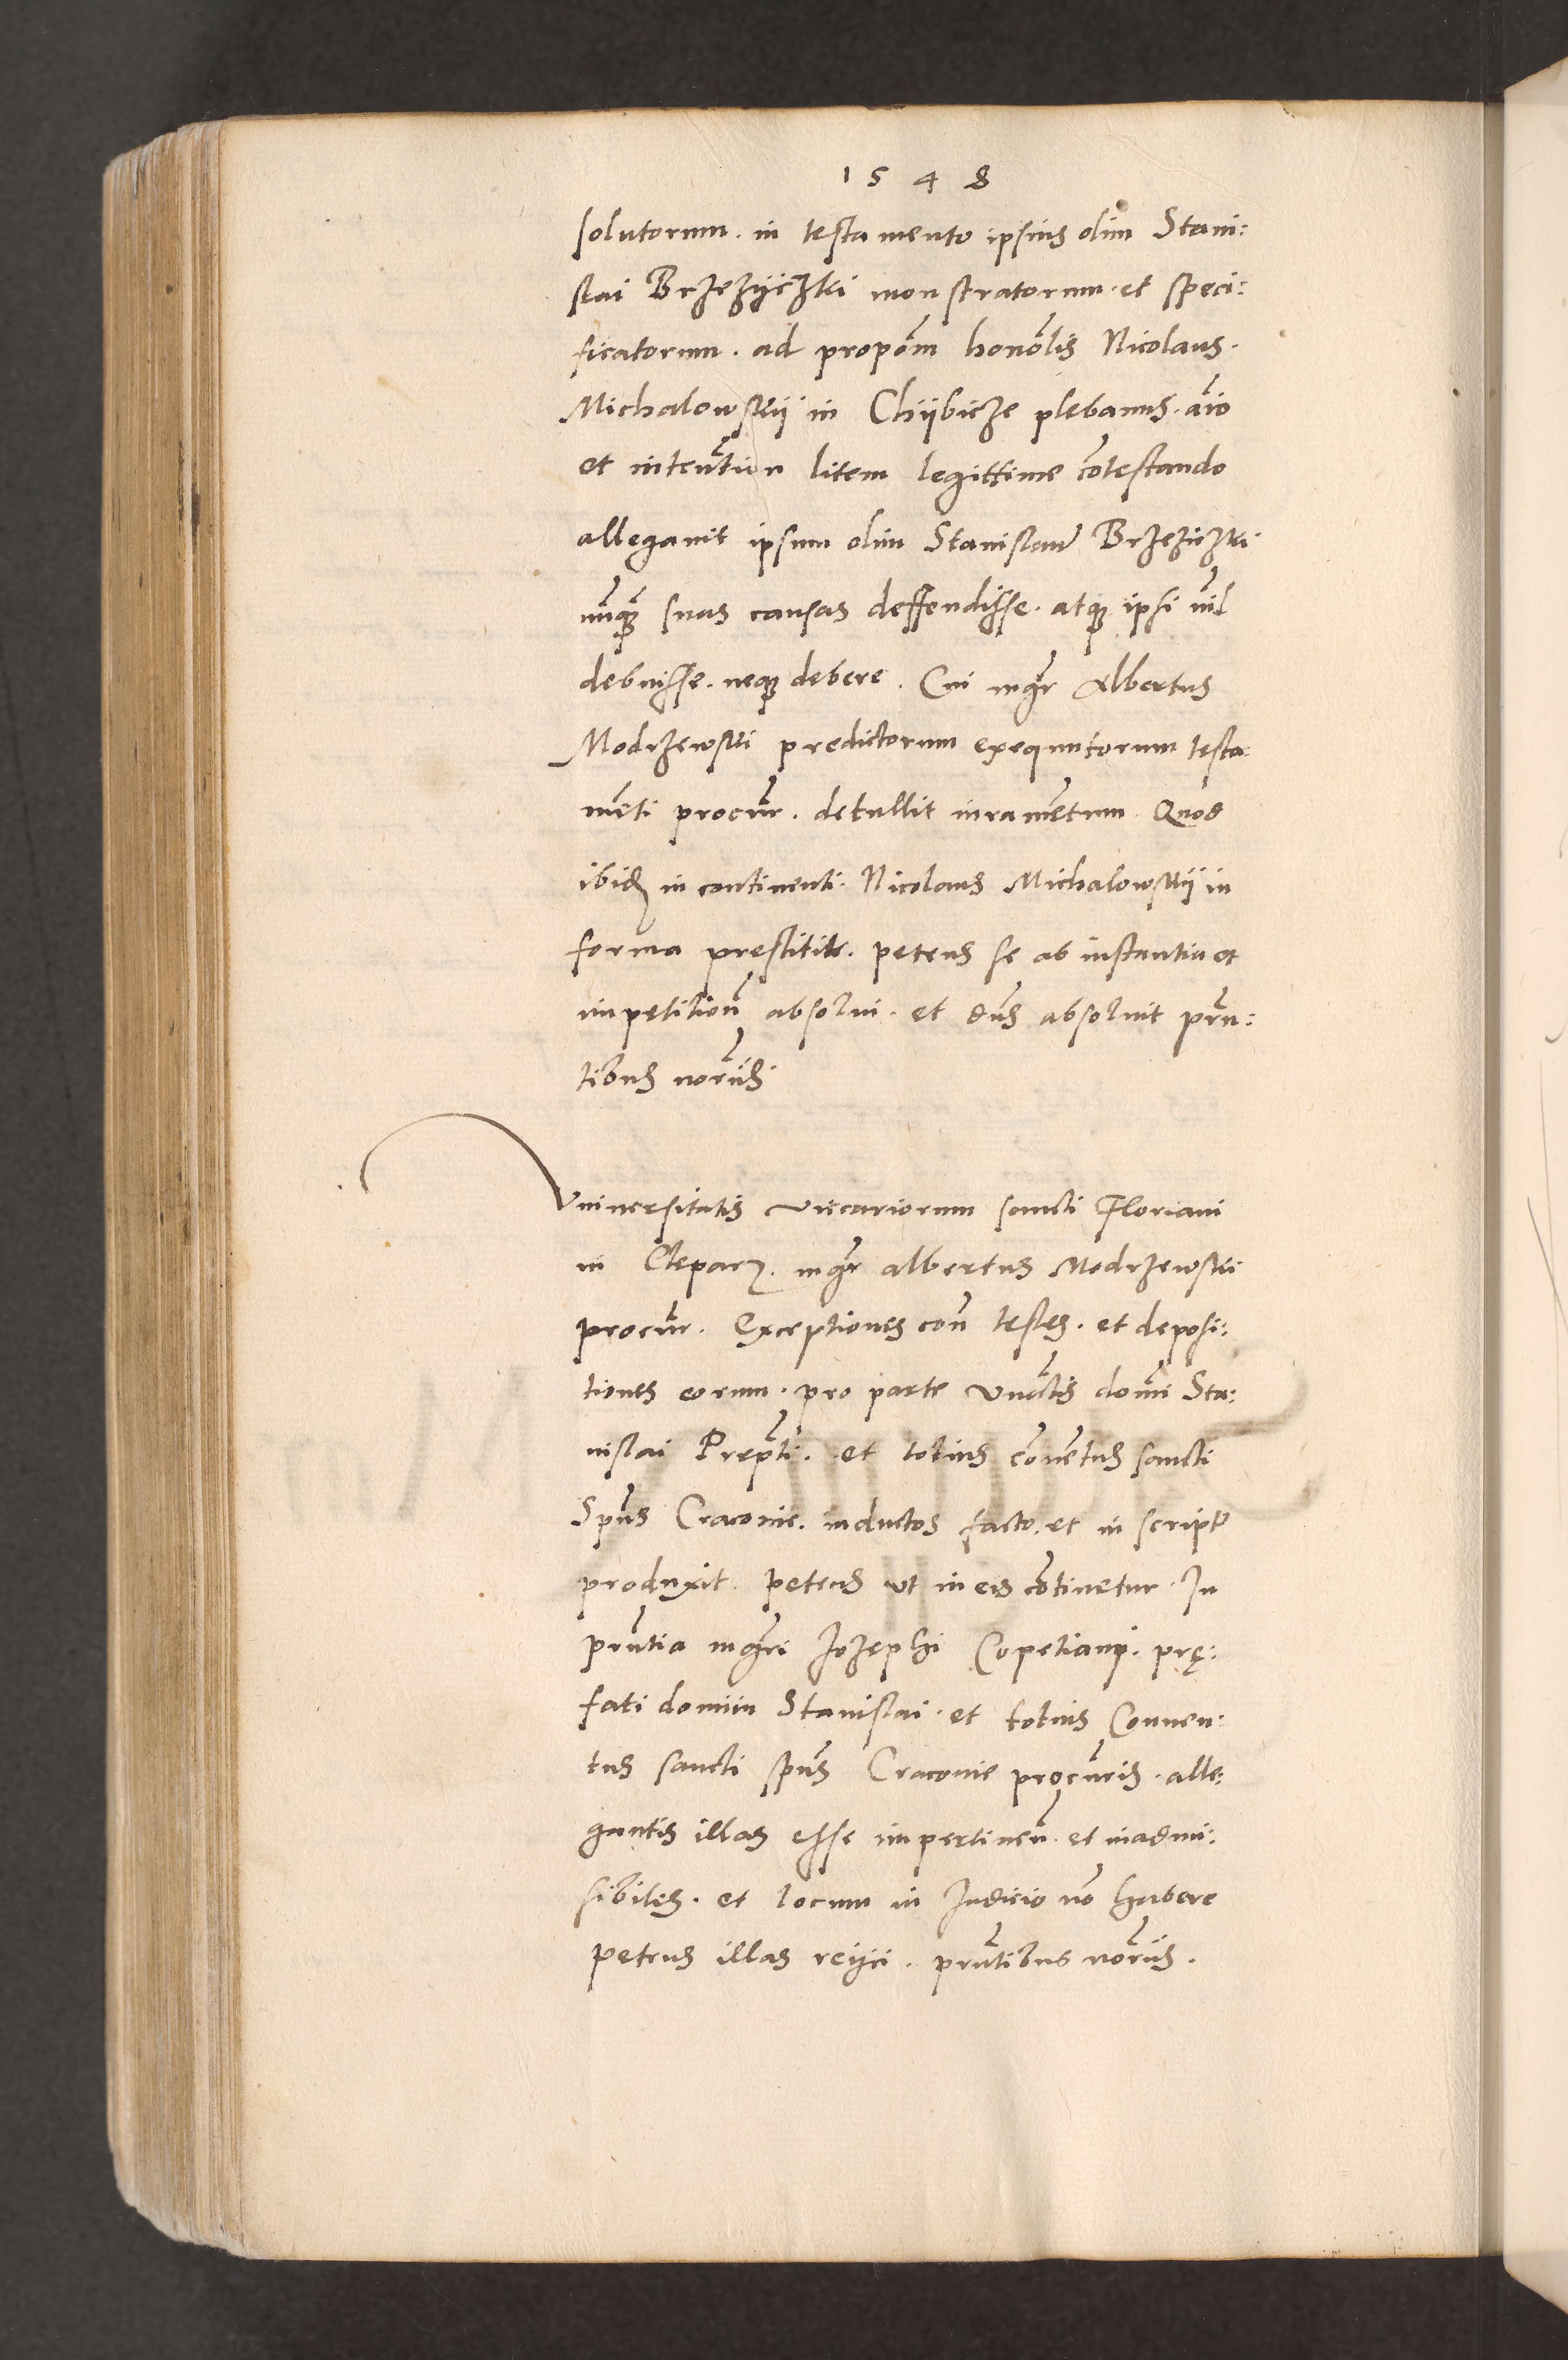 1548
solutorum. in testamento ipsius olim Stani:
slai Brzezijczki monstratorum. et speci:
ficatorum. ad propo͠m hono͠lis Nicolaus.
Michalowskij in Chijbicze plebanus. a͠io
et inten͠tion litem legittime co͠testando
allegauit ipsum olim Stanislau͠ Brzeziczki
nu͠q͠ suas causas deffendisse. atq ipsi ni͠l
debuisse. neq debere. Cui mg͠r Albertus
Modrzewski predictorum exequutorum testa:
me͠ti procu͠r. detullit iurame͠tum. Quod
ibid in continenti. Nicolaus Michalowskij in
forma prestitit. petens se ab instantia et
impetition͠ absolui. et d͠ns absoluit pr͠n:
tibus nor͠iis.
Vniuersitatis vicariorum sancti Floriani
in Clepar. mg͠r albertus Modrzewskii
procu͠r. Exceptiones con͠ testes. et deposi:
tiones eorum. pro parte vn͠ctis dom͠i Sta:
nislai Prep͠ti. et totius co͠ue͠tus sancti
Sp͠us Cracouie. inductos facto. et in script͠
produxit. petens vt in eis co͠tinetur. In
pr͠ntia mg͠ri Jozephi Copetiani. prę:
fati domini Stanislai. et totius Conuen:
tus sancti sp͠us Cracouie procu͠ris. alle:
gantis illas esse impertinen͠. et inadmi:
sibiles. et locum in Judicio no͠ habere
petens illas reijci. pr͠ntibus nor͠iis.